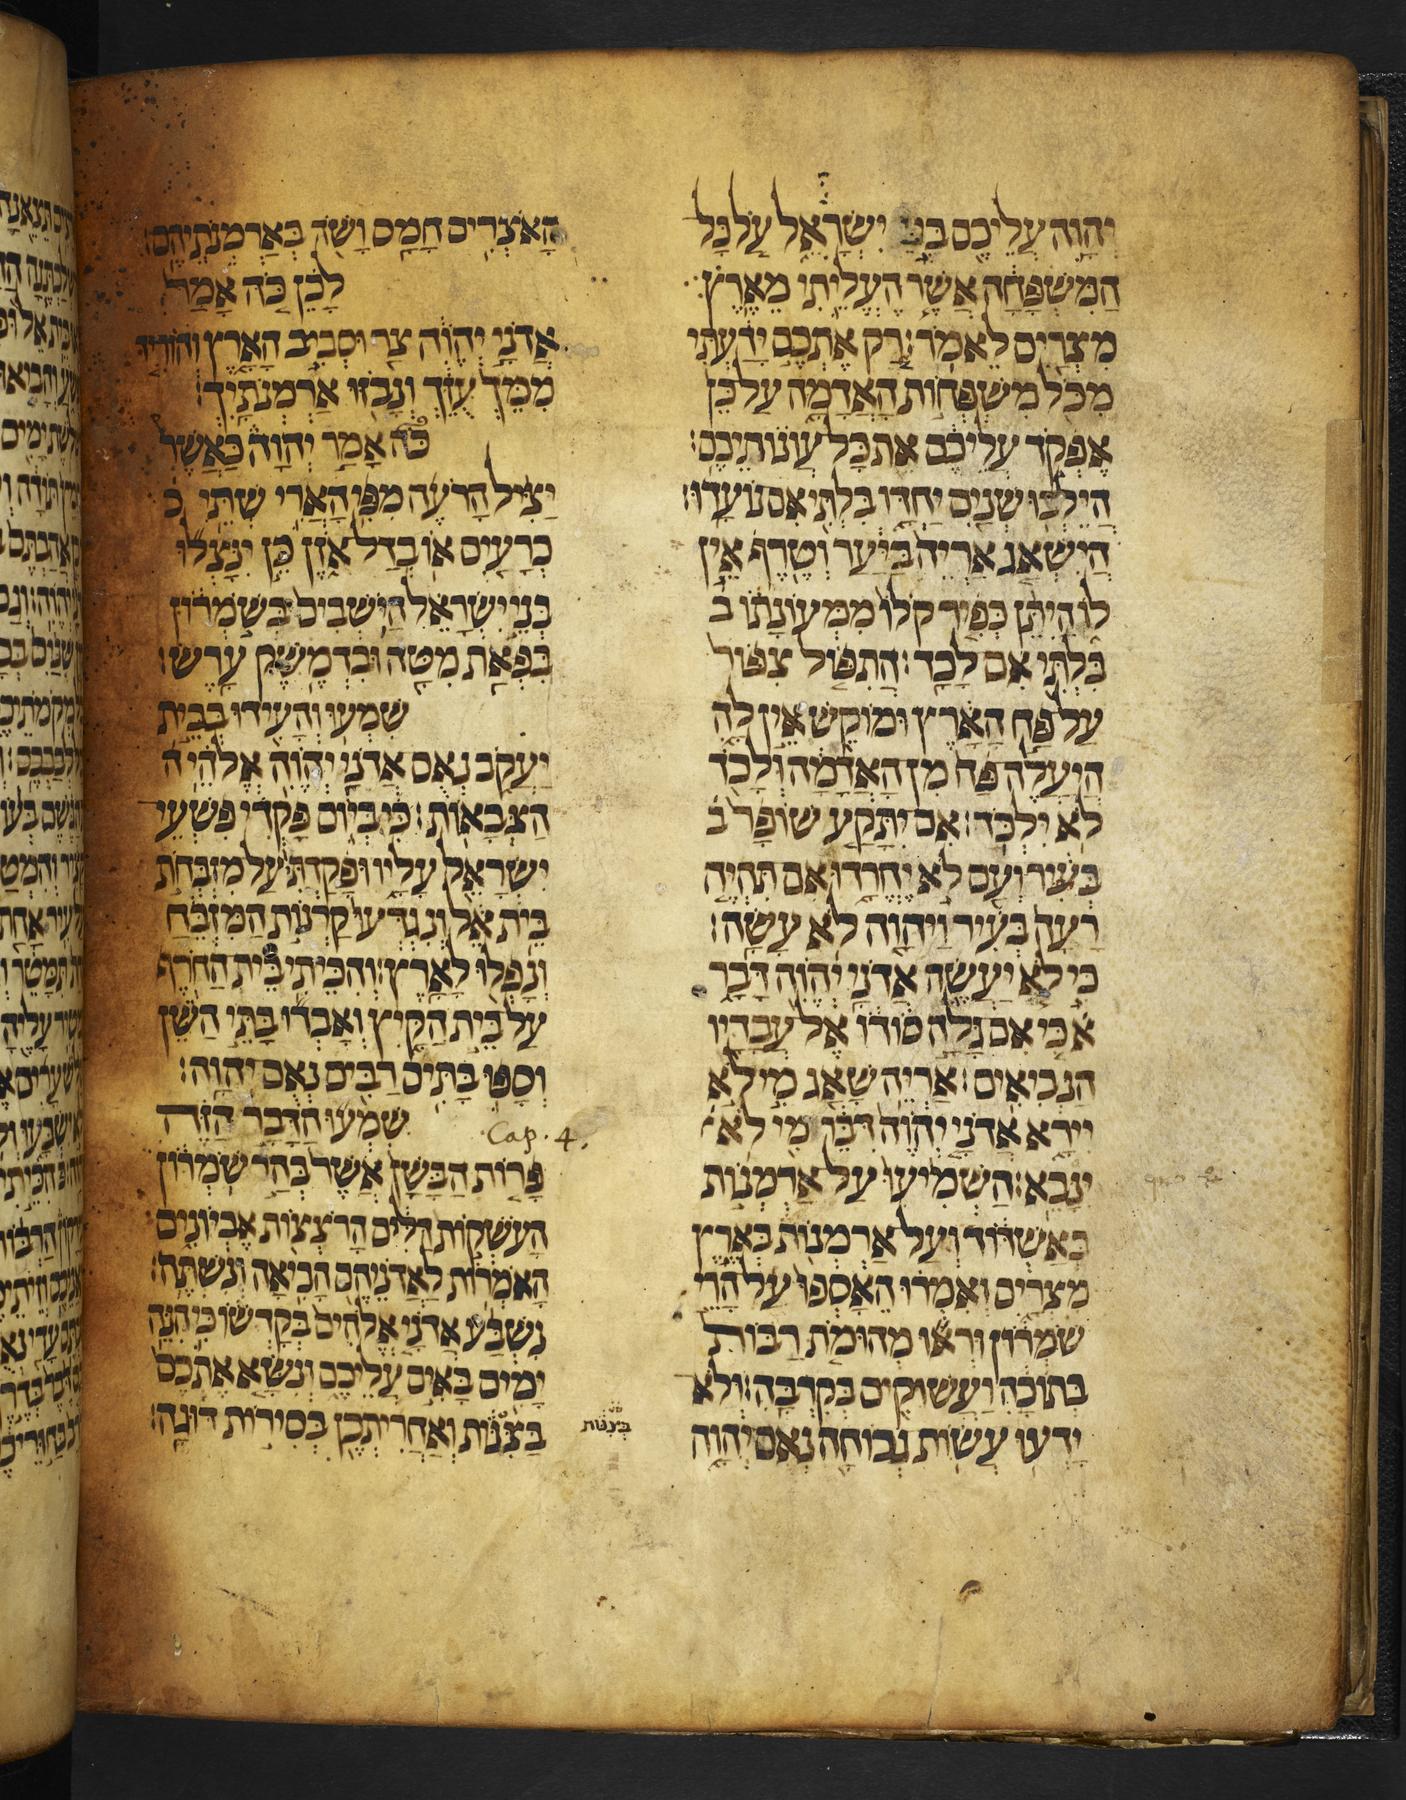 יְהוָֹה עֲלֵיכֶם בְּנֵי יִשְׂרָאֵל עַל כָּל
הַמִּשְׁפָּחָה אֲשֶׁר הֶעֱלֵיתִי מֵאֶרֶץ
מִצְרַיִם לֵאמֹר׃ רַק אֶתְכֶם יָדַעְתִּי
מִכֹּל מִשְׁפְּחוֹת הָאֲדָמָה עַל כֵּן
אֶפְקֹד עֲלֵיכֶם אֵת כָּל עֲוֹנוֹתֵיכֶם׃
הֲיֵלְכוּ שְׁנַיִם יַחְדָּו בִּלְתִּי אִם נוֹעָדוּ׃
הֲיִשְׁאַג אַרְיֵה בַּיַּעַר וְטֶרֶף אֵין
לוֹ הֲיִתֵּן כְּפִיר קֹלוֹ מִמְּעוֹנָתוֹ ב
בִּלְתִּי אִם לָכָד׃ הֲתִפּוֹל צִפּוֹר
עַל פַּח הָאָרֶץ וּמוֹקֵשׁ אֵין לָהּ
הֲיַעֲלֶה פַּח מִן הָאֲדָמָה וְלָכֹד
לֹא יִלְכֹּד׃ אִם יִתָּקַע שׁוֹפָר ב
בְּעִיר וְעָם לֹא יֶחֱרָדוּ אִם תִּהְיֶה
רָעָה בְּעִיר וַיהוָֹה לֹא עָשָׂה׃
כִּי לֹא יַעֲשֶׂה אֲדֹנָי יְהוִֹה דָּבָר
א כִּי אִם גָּלָה סוֹדוֹ אֶל עֲבָדָיו
הַנְּבִיאִים׃ אַרְיֵה שָׁאָג מִי לֹא
יִירָא אֲדֹנָי יְהוִֹה דִּבֶּר מִי לֹא
יִנָּבֵא׃ הַשְׁמִיעוּ עַל אַרְמְנוֹת
בְּאַשְׁדּוֹד וְעַל אַרְמְנוֹת בְּאֶרֶץ
מִצְרָיִם וְאִמְרוּ הֵאָסְפוּ עַל הָרֵי
שֹׁמְרוֹן וּרְאוּ מְהוּמֹת רַבּוֹת
בְּתוֹכָהּ וַעֲשׁוּקִים בְּקִרְבָּהּ׃ וְלֹא
יָדְעוּ עֲשׂוֹת נְכוֹחָה נְאֻם יְהוָֹה
הָאֹצְרִים חָמָס וָשֹׁד בְּאַרְמְנֹתֵיהֶם׃
לָכֵן כֹּה אָמַר
אֲדֹנָי יְהוִֹה צַר וּסְבִיב הָאָרֶץ וְהוֹרִיד
מִמֵּךְ עֻזֵּךְ וְנָבֹזּוּ אַרְמְנֹתָיִךְ׃
כֹּה אָמַר יְהוָֹה כַּאֲשֶׁר
יַצִּיל הָרֹעֶה מִפִּי הָאֲרִי שְׁתֵּי כ
כְרָעַיִם אוֹ בְדַל אֹזֶן כֵּן יִנָּצְלוּ
בְּנֵי יִשְׂרָאֵל הַיֹּשְׁבִים בְּשֹׁמְרוֹן
בִּפְאַת מִטָּה וּבִדְמֶשֶׁק עָרֶשׂ׃
שִׁמְעוּ וְהָעִידוּ בְּבֵית
יַעֲקֹב נְאֻם אֲדֹנָי יְהוִֹה אֱלֹהֵי ה
הַצְּבָאוֹת׃ כִּי בְּיוֹם פָּקְדִי פִשְׁעֵי
יִשְׂרָאֵל עָלָיו וּפָקַדְתִּי עַל מִזְבְּחֹת
בֵּית אֵל וְנִגְדְּעוּ קַרְנוֹת הַמִּזְבֵּחַ
וְנָפְלוּ לָאָרֶץ׃ וְהִכֵּיתִי בֵית הַחֹרֶף
עַל בֵּית הַקָּיִץ וְאָבְדוּ בָּתֵּי הַשֵּׁן
וְסָפוּ בָּתִּים רַבִּים נְאֻם יְהוָֹה׃
שִׁמְעוּ הַדָּבָר הַזֶּה
Cap. 4.
פָּרוֹת הַבָּשָׁן אֲשֶׁר בְּהַר שֹׁמְרוֹן
הָעֹשְׁקוֹת דַּלִּים הָרֹצְצוֹת אֶבְיוֹנִים
הָאֹמְרוֹת לַאֲדֹנֵיהֶם הָבִיאָה וְנִשְׁתֶּה׃
נִשְׁבַּע אֲדֹנָי אֱלֹהִים בְּקָדְשׁוֹ כִּי הִנֵּה
יָמִים בָּאִים עֲלֵיכֶם וְנִשָּׂא אֶתְכֶם
בַּצִנּוֹת וְאַחֲרִיתְכֶן בְּסִירוֹת דּוּגָה׃
בְּצִנּוֹת